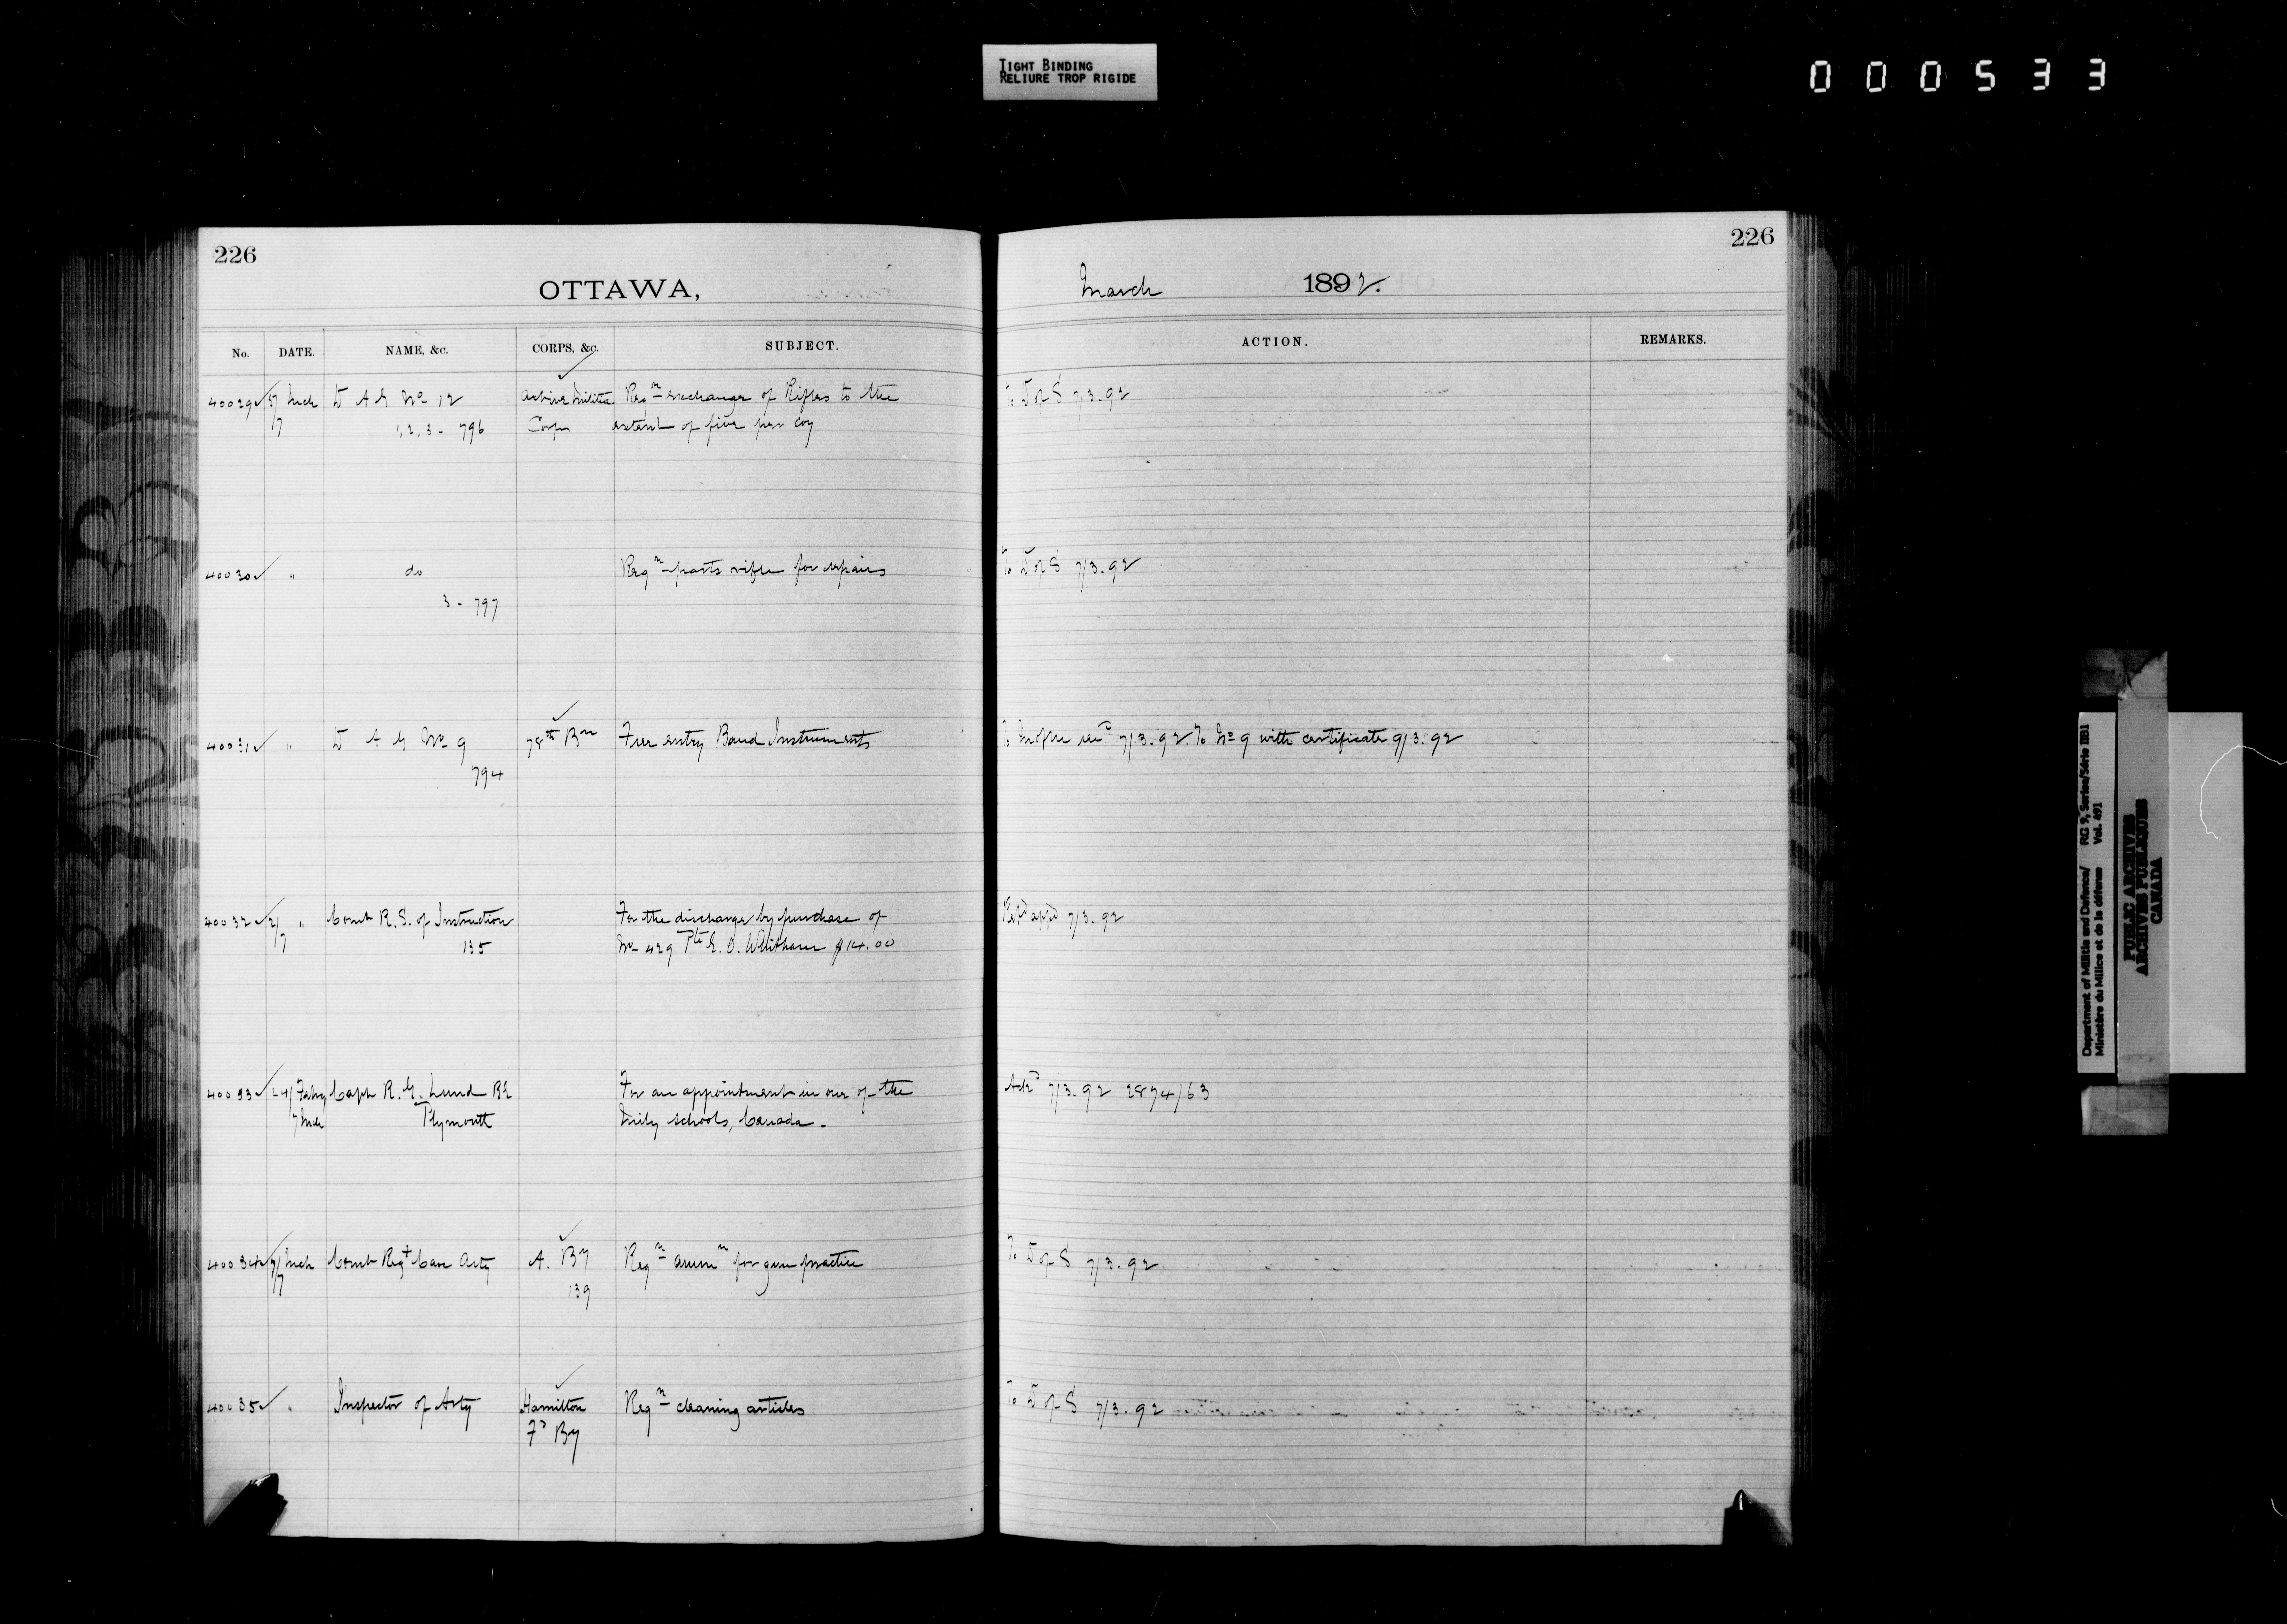 TIGHT BINDING
RELIURE TROP RIGIDE
000533
226
226
OTTAWA,
March 1892.
No. DATE. NAME, &c. CORPS, &c. SUBJECT. ACTION. REMARKS.
40029 5/ Mch D A G No 12 Active Militia Reqn exchange of Rifles to the To D of S 7/3.92
/7 1.2.3 - 796 Corps extent of five per Coy
40030 " do Reqn parts rifle for repairs To D of S 7/3.92
3 - 797
40031 " D A G No 9 78th Bn Free entry Band Instruments 7/3.92. To No 9 with certificate 9/3.92
794
40032 2/ " Comt R. S. of Instruction For the discharge by purchase of appd 7/3.92
/7 135 No 429 Pte $14.00
40033 24/ Feby Capt R. G. Lund RE For an appointment in one of the Ackd 7/3.92 2874/63
7 Mch Plymouth Mily schools, Canada.
40034 7/ Mch Comt Regt Can Arty A. By Reqn ammn for gun practice To D of S 7/3.92
/7 139
40035 " Inspector of Arty Hamilton Reqn cleaning articles To D of S 7/3.92
Fd By
Department of Militia and Defence/ RG 9, Series/Série IIB1
Ministère du Milice et de la défense Vol. 491
PUBLIC ARCHIVES
ARCHIVES PUBLIQUES
CANADA